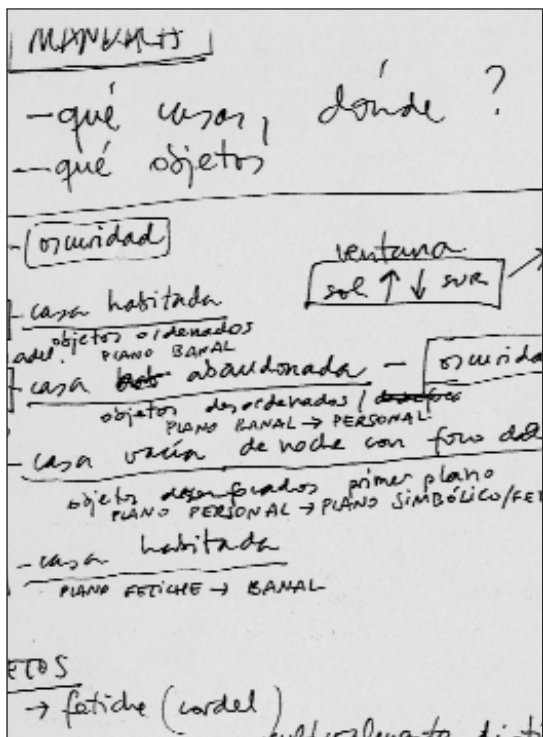 - qué casas, dónde ?
- qué objetos
- oscuridad
ventana
sol ↑ ↓ sur
- casa habitada
objetos ordenados
adel. PLANO BANAL
- casa abandonada - oscurida
objetos desordenados /
PLANO BANAL → PERSONAL
- casa vacía de noche con foco
objetos desenfocados primer plano
PLANO PERSONAL → PLANO SIMBÓLICO/FET
- casa habitada
PLANO FETICHE → BANAL
ETOS
→ fetiche (cordel)